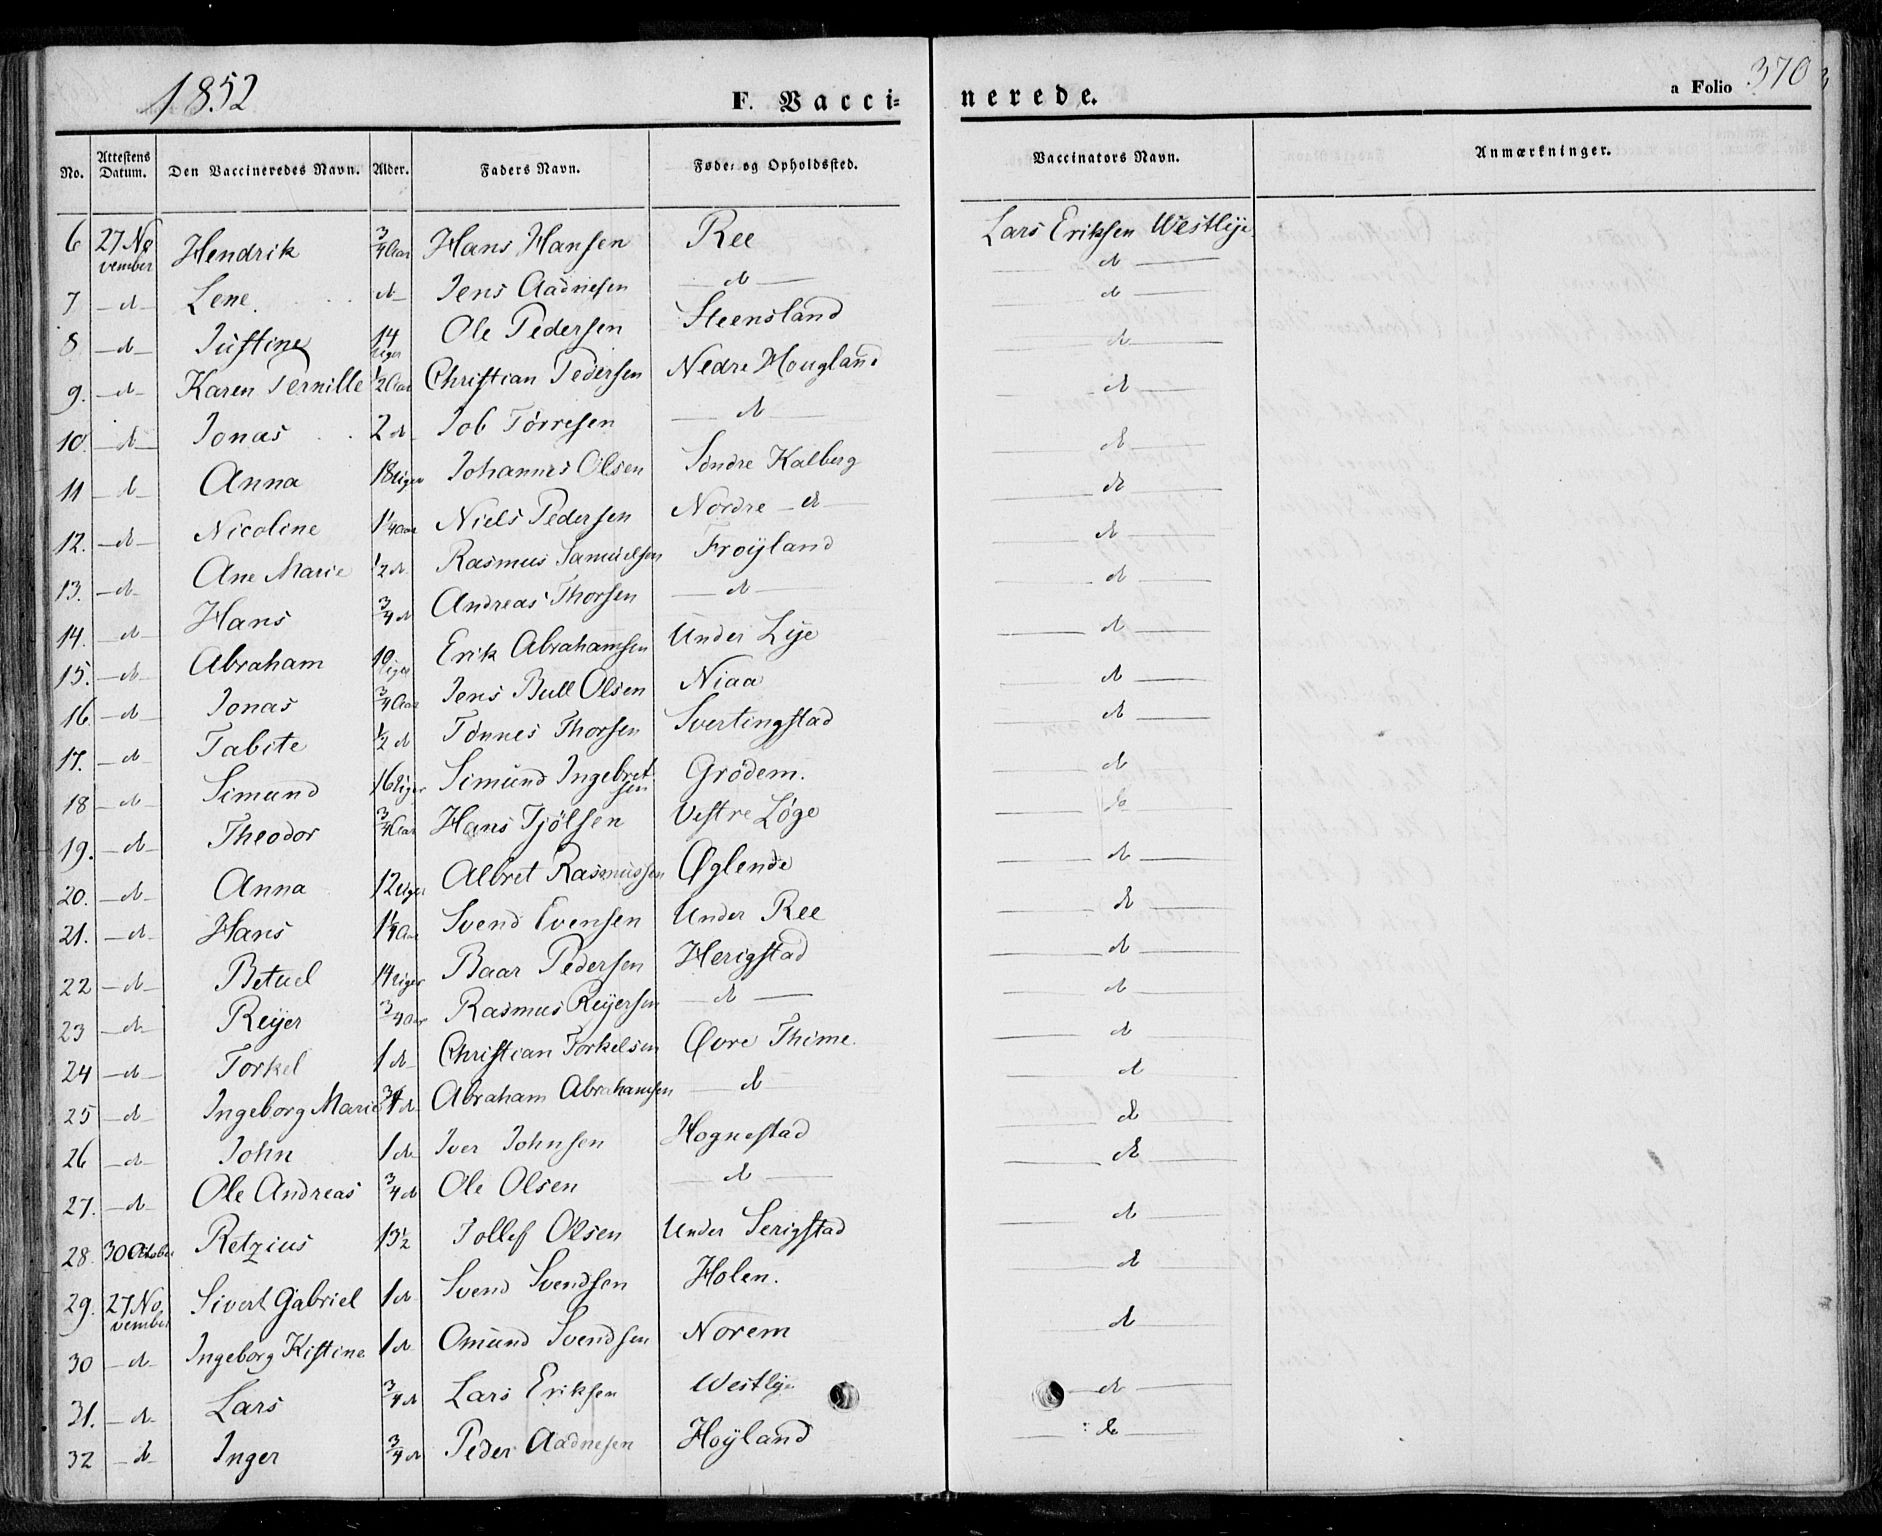 1852 F. Vacci= nerede. a Folio 370
No. Attestens Datum. Den Vaccineredes Navn. Alder. Faders Navn. Føde= og Opholdssted. Vaccinators Navn. Anmærkninger.
6 27 No vember Hendrik 3/4 Aar Hans Hansen Ree Lars Eriksen Westlye
7 — d — Lene d — Jens Aadnesen — d — — d —
8 — d — Justine 14 Uger Ole Pedersen Steensland — d —
9. — d — Karen Pernille 1/2 Aar Christian Pedersen Nedre Hougland — d —
10. — d — Jonas 2 d Job Tørresen — d — — d —
11 — d — Anna 18 Uger Johannes Olsen Søndre Kalberg — d —
12. — d — Nicoline 1 1/4 Aar Niels Pedersen Nordre — d — — d —
13. — d — Ane Marie 1/2 d Rasmus Samuelsen Frøyland — d —
14. — d — Hans 3/4 d Andreas Thorsen — d — — d —
15. — d — Abraham 10 Uger Erik Abrahamsen Under Lye — d —
16. — d — Jonas 3/4 Aar Jens Bull Olsen Niaa — d —
17. — d — Tabite 1/2 d Tønnes Thorsen Svertingstad — d —
18 — d — Simund 16 Uger Simund Ingebretsen Grødem. — d —
19. — d — Theodor 3/4 Aar Hans Tjølsen Vestre Løge — d —
20. — d — Anna 12 Uger Albret Rasmussen Øglende — d —
21. — d — Hans 1 1/4 Aar Svend Evensen Under Ree — d —
22 — d — Betuel 14 Uger Baar Pedersen Herigstad — d —
23 — d — Reÿer 3/4 Aar Rasmus Reÿersen — d — — d —
24 — d — Torkel 1 d Christian Torkelsen Øvre Thime — d —
25 — d — Ingeborg Marie 3/4 d Abraham Abrahamsen — d — — d —
26 — d — John 1 d Iver Johnsen Hognestad — d —
27. — d — Ole Andreas 3/4 d Ole Olsen — d — — d —
28. 30 October Retzius 13 1/2 Jollef Olsen Under Serigstad — d —
29. 27 No vember Sivert Gabriel 1 d Svend Svendsen Holen. — d —
30 — d — Ingeborg Kistine 1 d Omund Svendsen Norem — d —
31. — d — Lars 3/4 d Lars Eriksen Westlye — d —
32 — d — Inger 3/4 d Peder Aadnesen Høÿland — d —